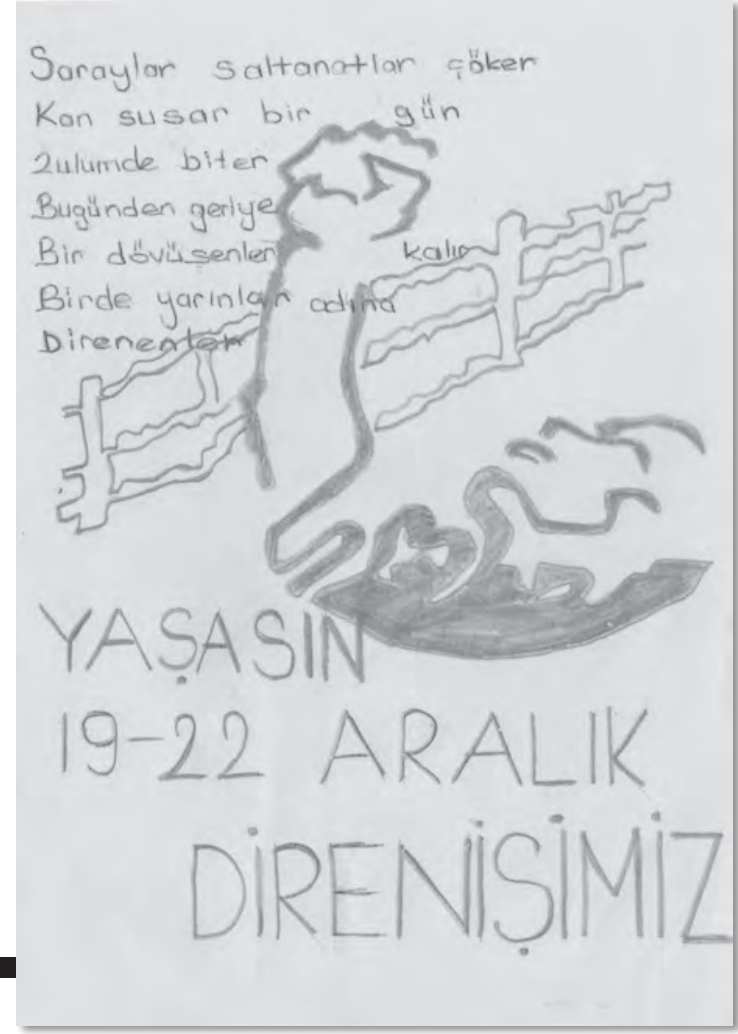 Saraylar saltanatlar çöker
Kan susar bir gün
Zulumde biter
Bugünden geriye
Bir dövüşenler kalır
Birde yarınlar adına
Direnenler
YAŞASIN
19-22 ARALIK
DİRENİŞİMİZ